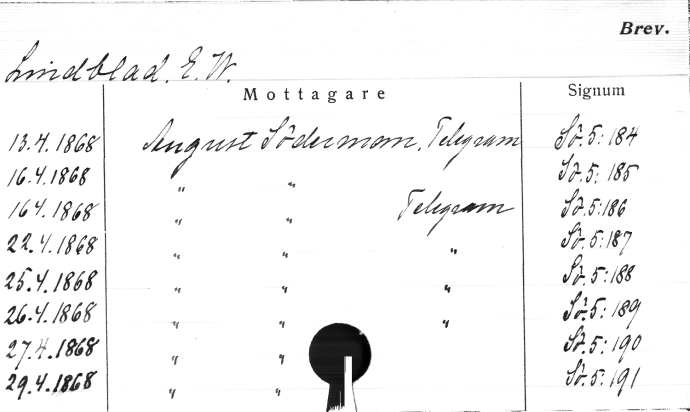 Brev.
Lindblad, E. W.
Mottagare Signum
13.4.1868 August Söderman, Telegram Sö. 5: 184
16.4.1868 " " Sö. 5: 185
16 4. 1868 " " Telegram Sö. 5: 186
22.4.1868 " " " Sö. 5: 187
25.4.1868 " " " Sö. 5: 188
26.4.1868 " " " Sö. 5: 189
27.4.1868 " " Sö. 5: 190
29.4.1868 " " Sö. 5: 191